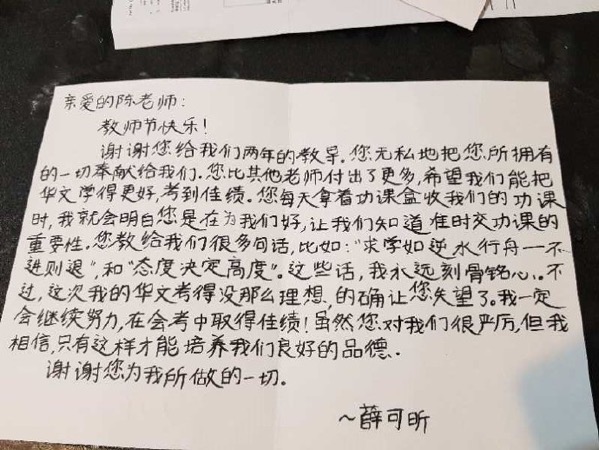 亲爱的陈老师:
教师节快乐!
谢谢您给我们两年的教导。您无私地把您所拥有
的一切奉献给我们。您比其他老师付出了更多,希望我们能把
华文学得更好,考到佳绩。您每天拿着功课盒收我们的功课
时,我就会明白您是在为我们好,让我们知道准时交功课的
重要性。您教给我们很多句话,比如:"求学如逆水行舟一不
进则退",和"态度决定高度"。这些话,我永远刻骨铭心。不
过,这次我的华文考得没那么理想,的确让您失望了。我一定
会继续努力,在会考中取得佳绩!虽然您对我们很严厉,但我
相信,只有这样才能培养我们良好的品德.
谢谢您为我所做的一切。
~薛可昕